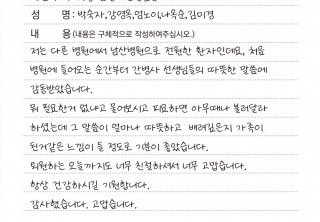 성 명 : 박숙자, 강영옥, 엄노이, 나옥순, 김미경
내 용 (내용은 구체적으로 작성하여주십시오.)
저는 다른 병원에서 남산병원으로 전원한 환자인데요, 처음
병원에 들어오는 순간부터 간병사 선생님들의 따뜻한 말씀에
감동받았습니다.
뭐 필요한거 없냐고 물어보시고 필요하면 아무때나 불러달라
하셨는데 그 말씀이 얼마나 따뜻하고 배려깊은지 가족이
된거같은 느낌이 들 정도로 기분이 좋았습니다.
퇴원하는 오늘까지도 너무 친절하셔서 너무 고맙습니다.
항상 건강하시길 기원합니다.
감사했습니다. 고맙습니다.